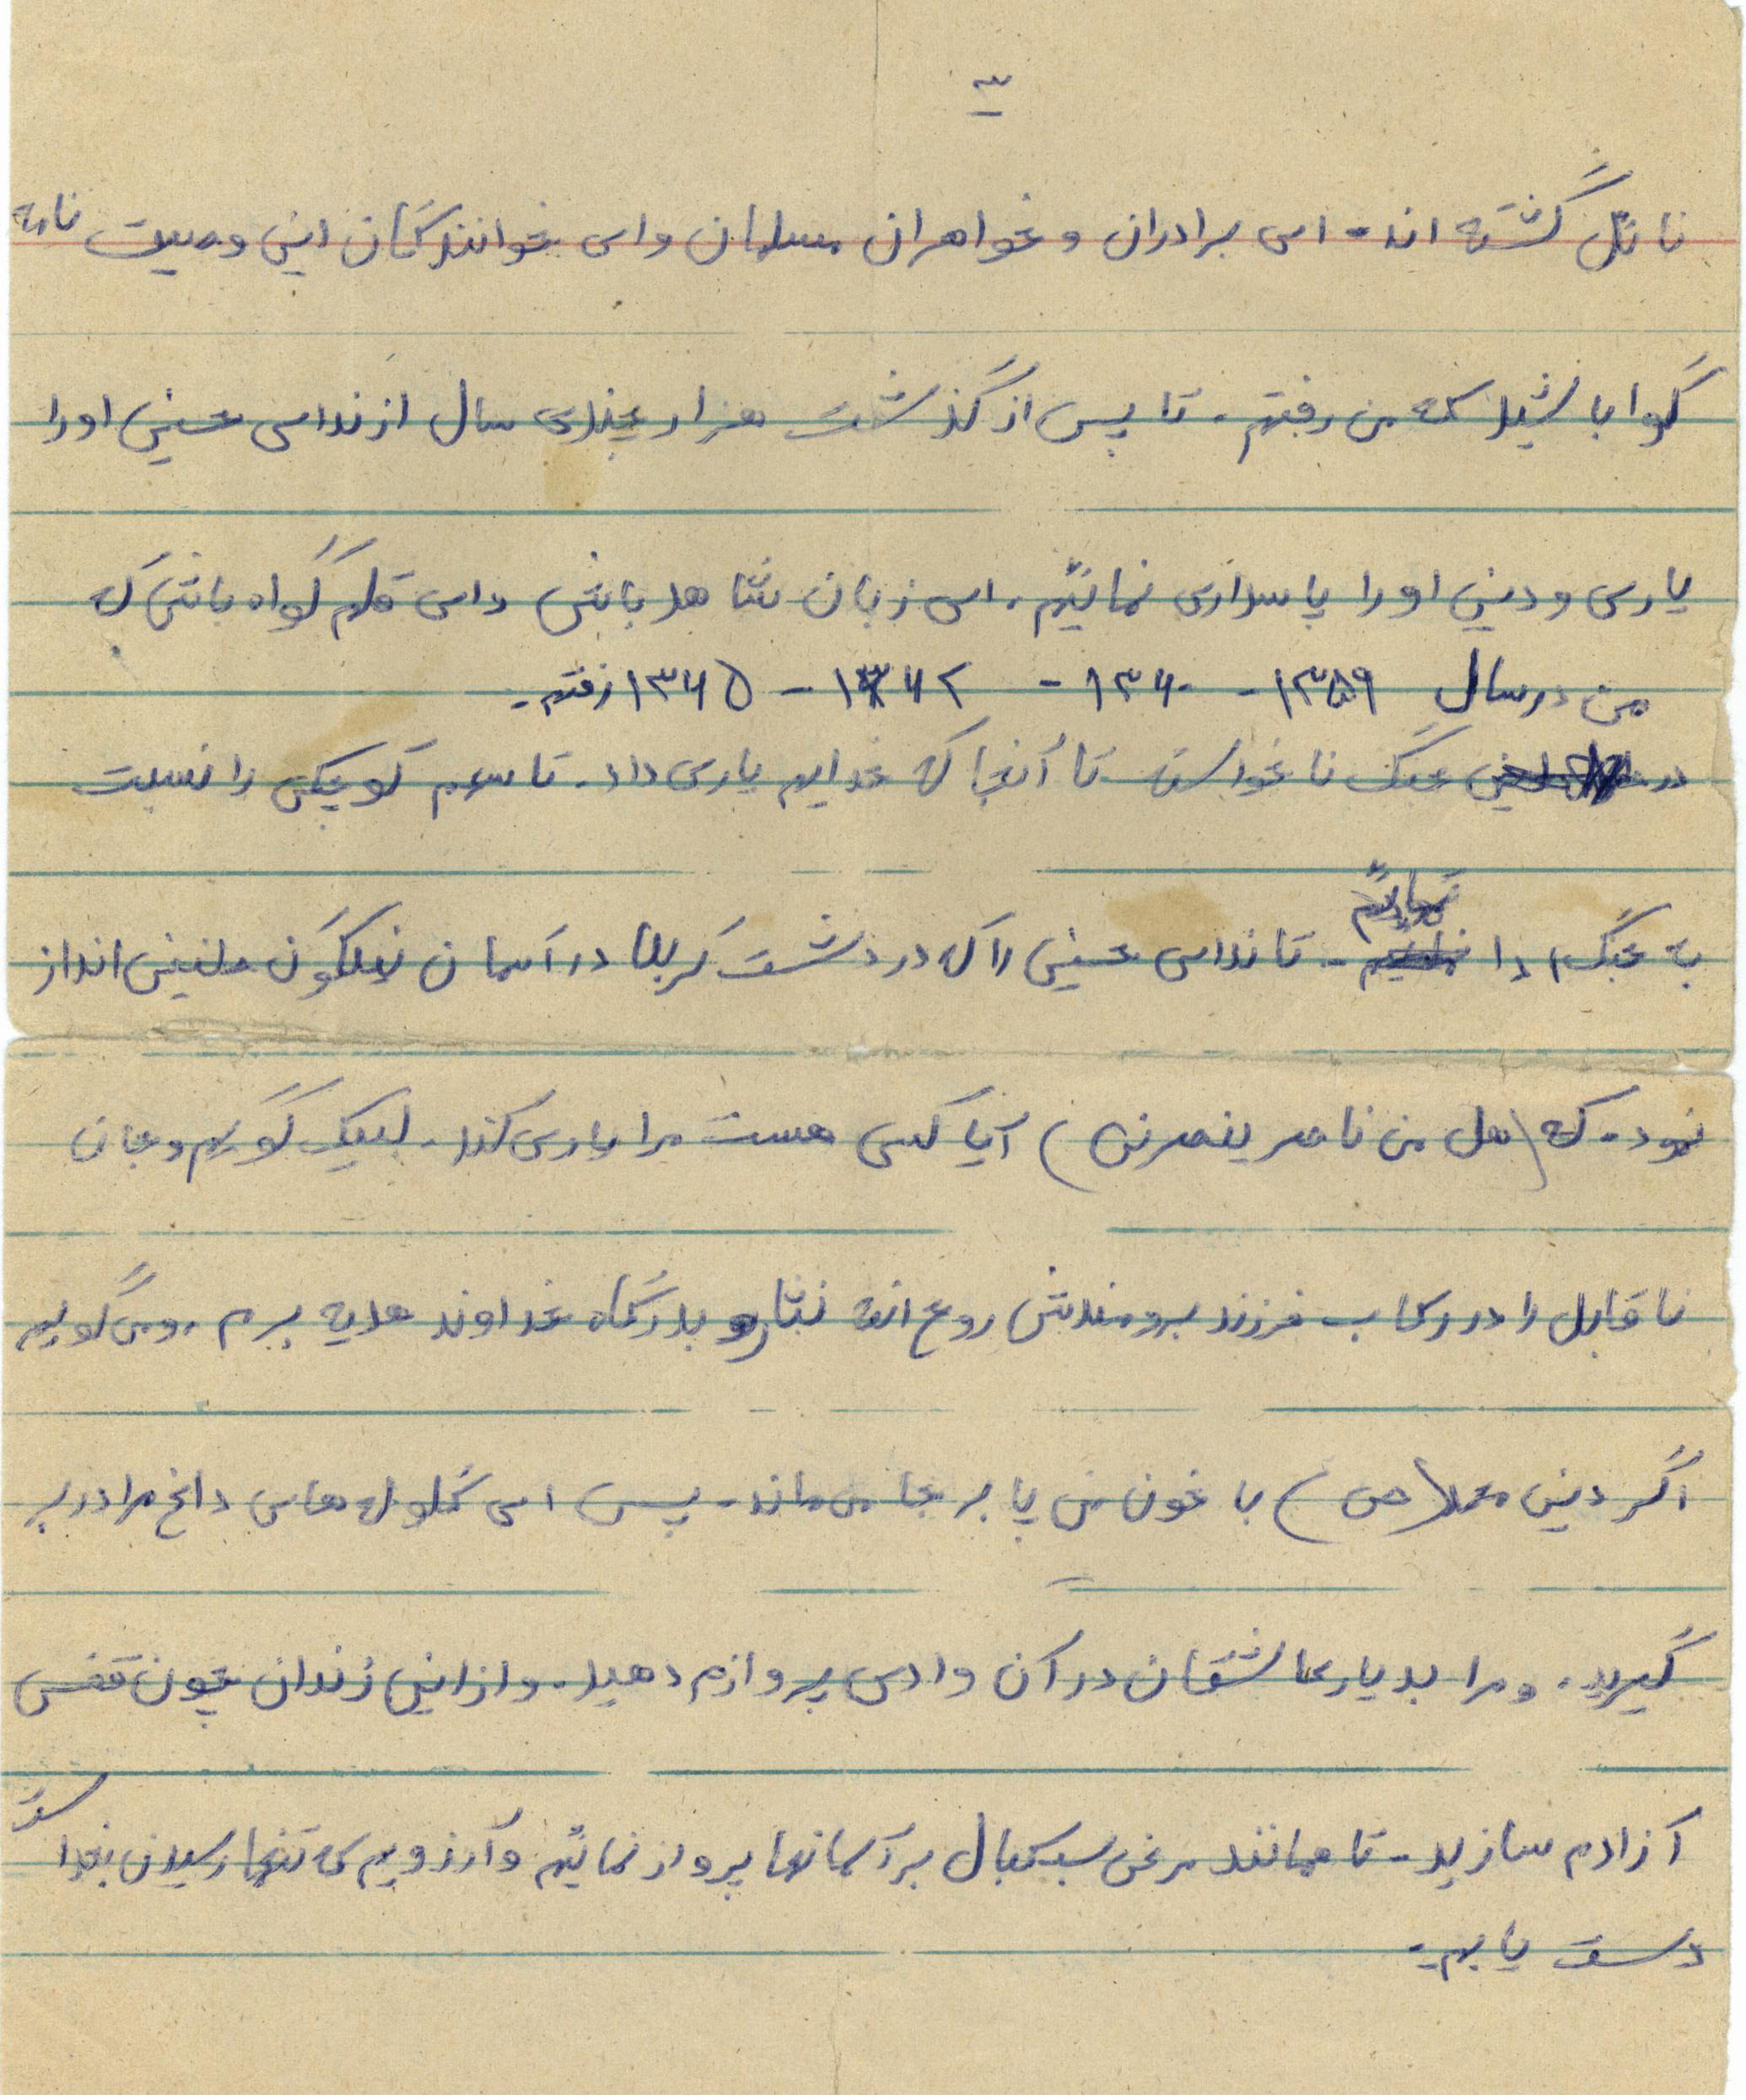 ۳
نائل گشته اند - ای برادران و خواهران مسلمان وای خوانندگان این وصیت نامه
گوا باشید که من رفتم. تا پس از گذشت هزار چندی سال از ندای حسین اورا
یاری و دین اورا پاسداری نمائیم، ای زبان شاهد باش وای قلم گواه باش که
من در سال ۱۳۵۹ - ۱۳۶۰ - ۱۳۶۲ - ۱۳۶۵ رفتم -
در جنگ ناخواسته تا آنجا که خدایم یاری داد. تا سهم کوچکی را نسبت
به جنگ ادا نمائیم - تا ندای حسین را که در دشت کربلا در آسمان نیلگون طنین انداز
نمود - که (هل من ناصر ینصرنی) آیا کسی هست مرا یاری کند - لبیک گویم و جان
ناقابل را در رکاب فرزند برومندش روح الله نثار و بدرگاه خداوند هدیه برم . ومی گویم
اگر دین محمد (ص) با خون من پا بر جا می ماند - پس ای گلوله های داغ مرا دربر
گیرید. و مرا بدیار عاشقان در آن وادی پروازم دهید - و از این زندان چون قفس
آزادم سازید - تا همانند مرغی سبکبال بر آسمانها پرواز نمائیم و آرزویم که تنها رسیدن بخدا ست
دست یابم -